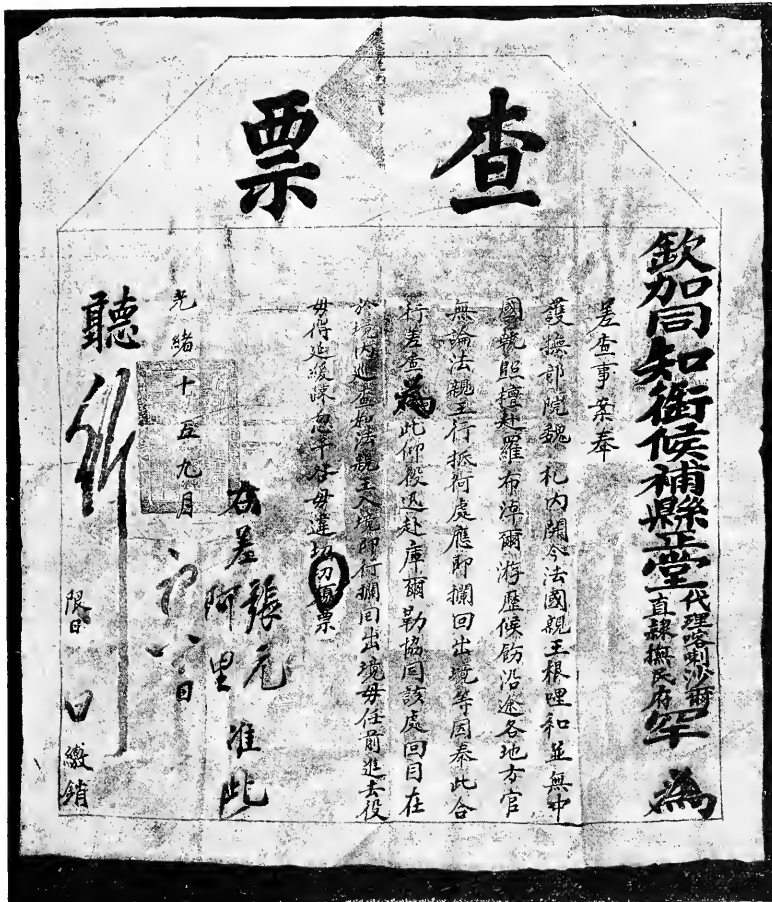 查票
欽加同知銜候補縣正堂代理喀喇沙爾直隸撫民府罕 為
差查事案奉
護撫部院魏 札內開今法國親王根哩和並無中
國執照擅赴羅布淖爾游歷候飭沿途各地方官
無論法親王行抵何處應即攔回出境等因奉此合
行差查為此仰役迅赴庫爾勒協同該處回目在
於境內巡查如法親王入境即行攔回出境毋任前進去役
毋得延緩疎忽干咎毋違切切須票
右差 張元 阿里 准此
光緒十五九月初八日
聽
限日 日繳銷